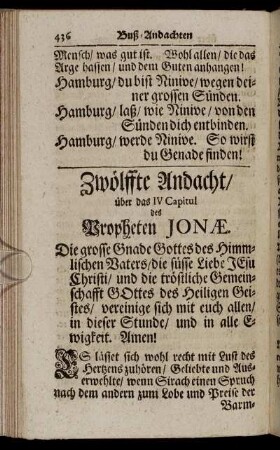 436 Buß-Andachten
Mensch / was gut ist. Wohl allen / die das
Arge hassen / und dem Guten anhangen!
Hamburg / du bist Niniwe / wegen dei-
ner grossen Sünden.
Hamburg / laß / wie Niniwe / von den
Sünden dich entbinden.
Hamburg / werde Niniwe. So wirst
du Genade finden!
Zwölffte Andacht /
über das IV Capitul
des
Propheten JONÆ.
Die grosse Gnade Gottes des Himm-
lischen Vaters / die süsse Liebe JEsu
Christi / und die tröstliche Gemein-
schafft GOttes des Heiligen Gei-
stes / vereinige sich mit euch allen /
in dieser Stunde / und in alle E-
wigkeit. Amen!
ES lässet sich wohl recht mit Lust des
Hertzens zuhören / Geliebte und Aus-
erwehlte / wenn Sirach einen Spruch
nach dem andern zum Lobe und Preise der
Barm-